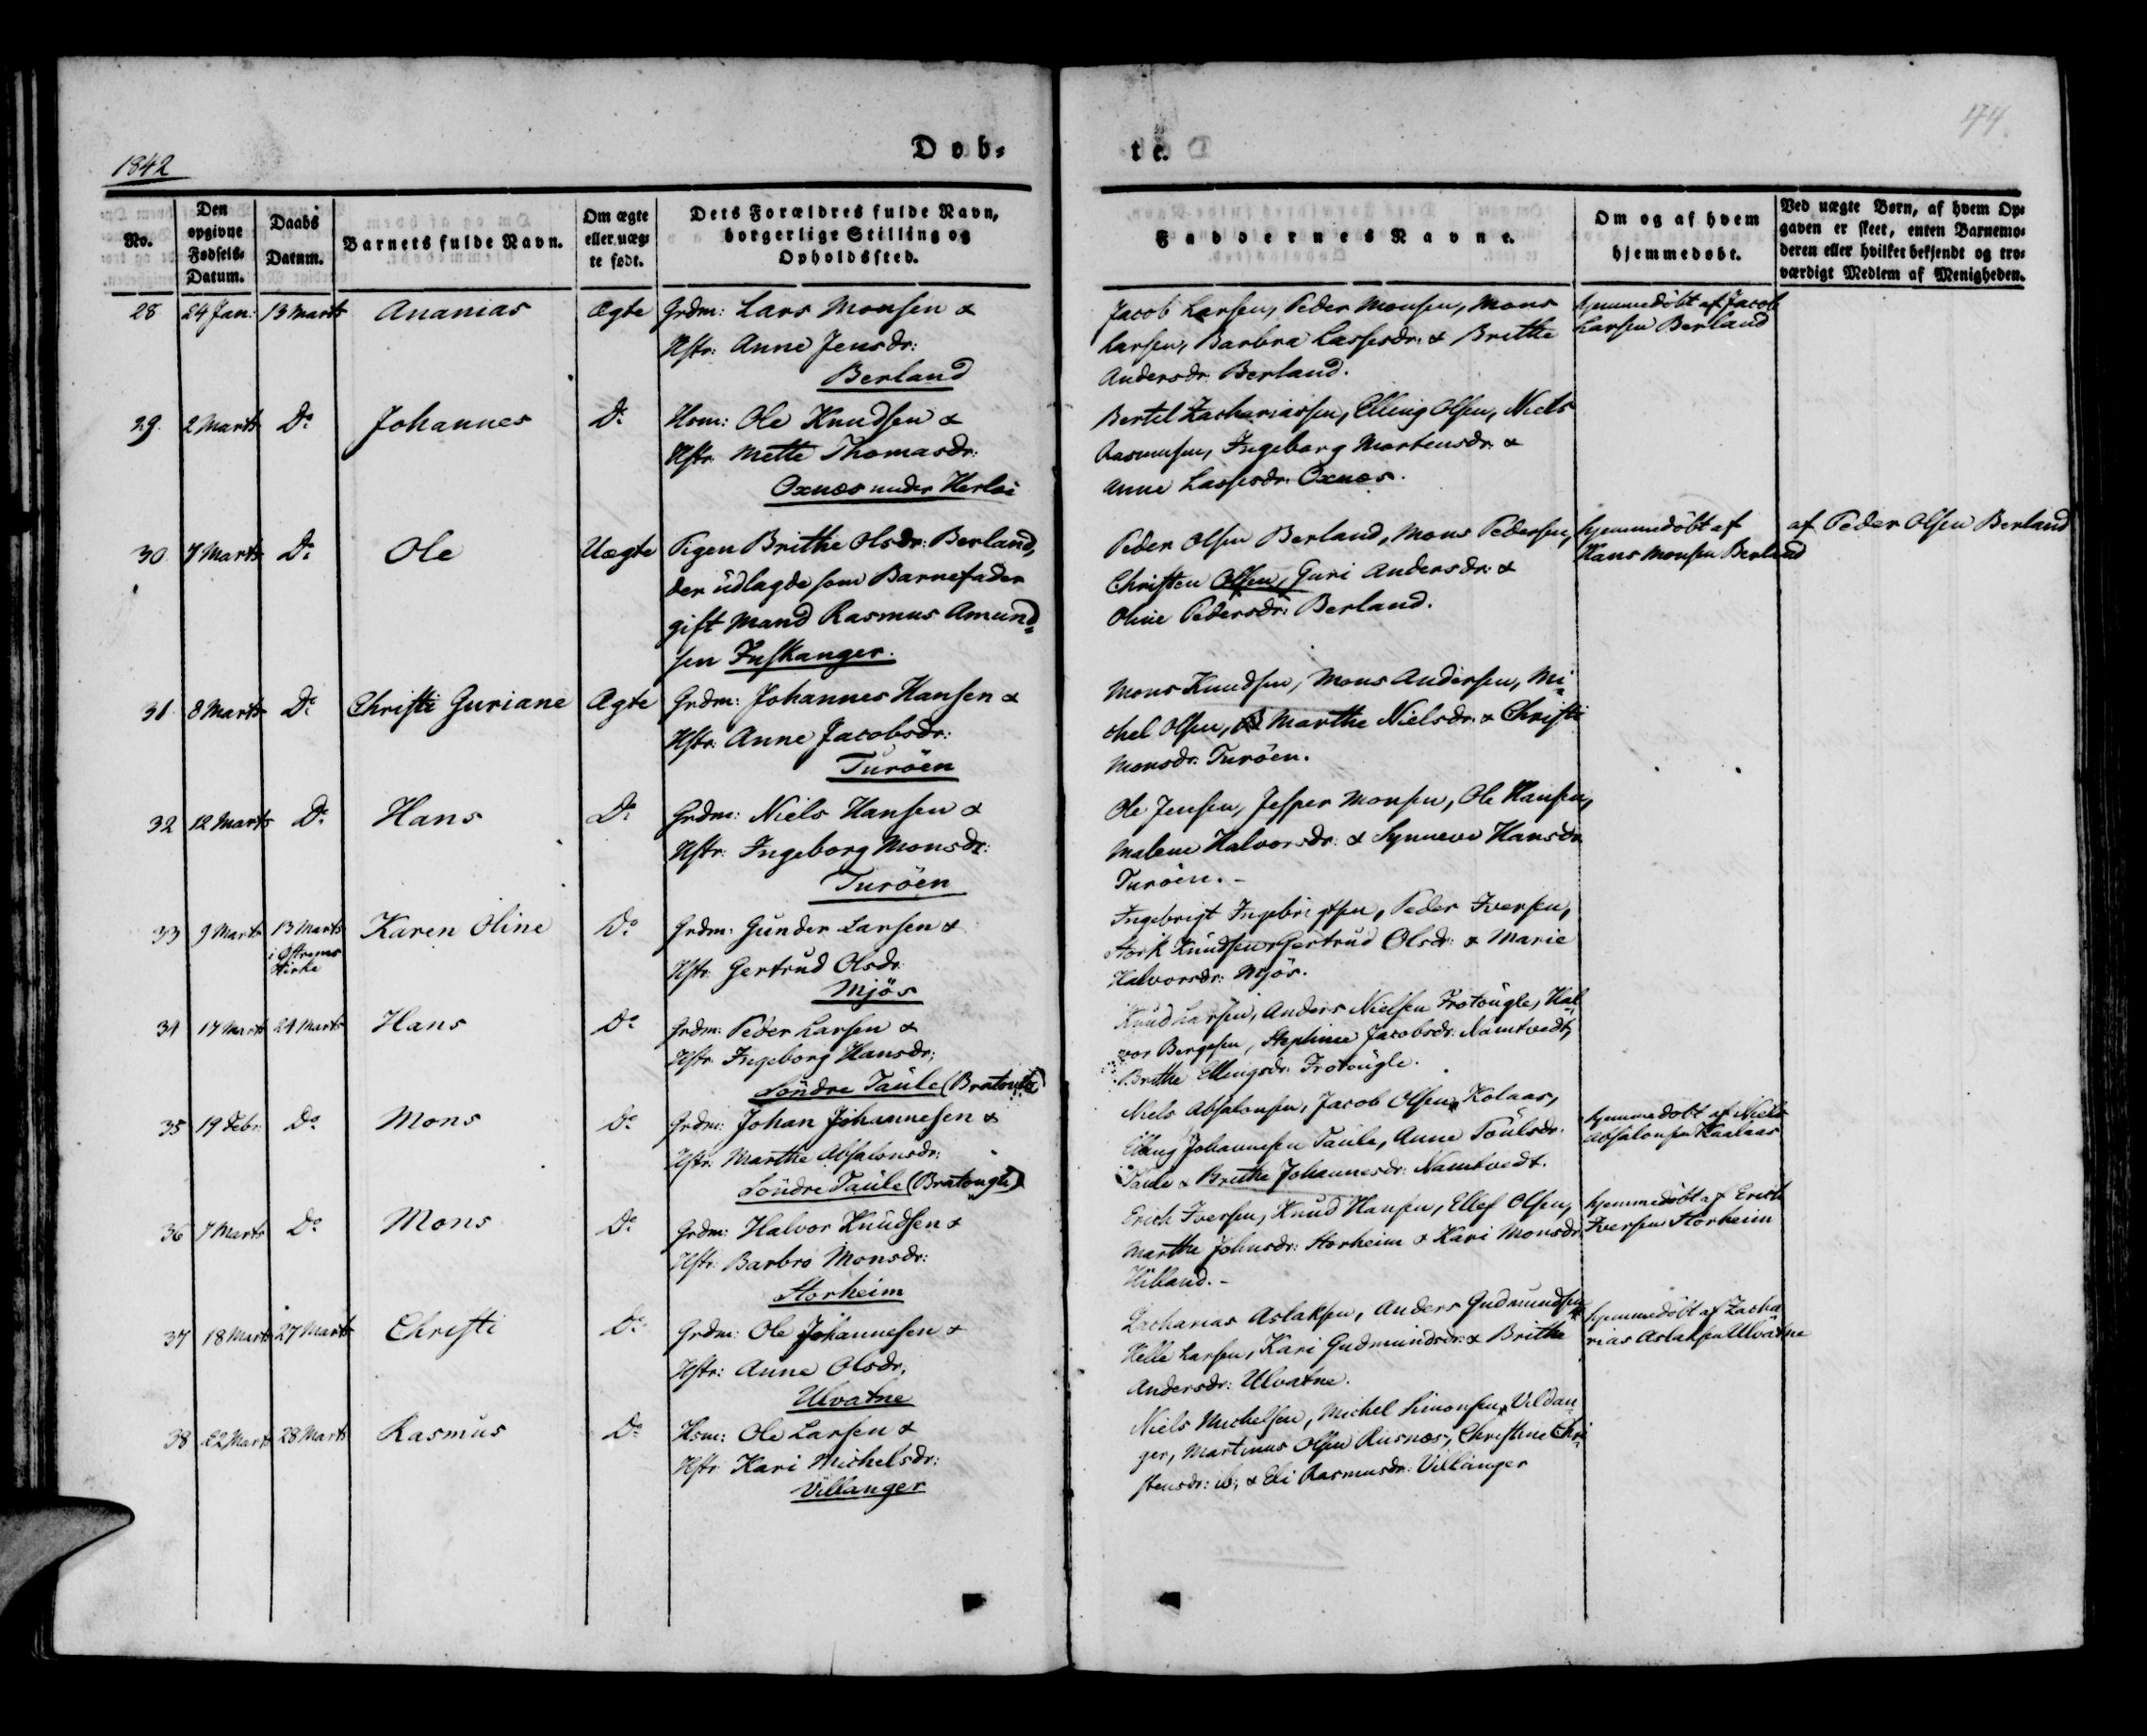 1842
Døb-
te.
174
No.
Den opgivne Fødsels-Datum.
Daabs Datum.
Barnets fulde Navn.
Om ægte eller uæg-te født.
Dets Forældres fulde Navn, borgerlige Stilling og Opholdssted.
Faddernes Navne.
Om og af hvem hjemmedøbt.
Ved uægte Børn, af hvem Op-gaven er skeet, enten Barnemo-deren eller hvilket bekjendt og tro-værdigt Medlem af Menigheden.
28 24 Jan: 13 Marts Ananias Ægte Grdm: Lars Monsen &
Hstr: Anne Jensdr:
Berland
Jacob Larsen, Peder Monsen, Mons
Larsen, Barbra Lassesdr: & Brithe
Andersdr. Berland.
hjemmedøbt af Jacob
Larsen Berland
29. 2 Marts Do Johannes Do Hsm: Ole Knudsen &
Hstr. Mette Thomasdr:
Oxnæs under Herlø
Bertel Zachariassen, Elling Olsen, Niels
Rasmusen, Ingeborg Mortensdr: &
Anne Lassesdr: Oxnæs.
30 7 Marts Do Ole Uægte Pigen Brithe Olsdr: Berland,
der udlagde som Barnefader
gift Mand Rasmus Amund-
sen Juskanger.
Peder Olsen Berland, Mons Pedersen,
Christen Olsen, Guri Andersdr: &
Oline Pedersdr: Berland.
hjemmedøbt af
Hans Monsen Berland
af Peder Olsen Berland
31. 8 Marts Do Christi Guriane Ægte Grdm: Johannes Hansen &
Hstr: Anne Jacobsdr:
Turöen
Mons Knudsen, Mons Andersen, Mi-
chel Olsen, Marthe Nielsdr: & Christi
Monsdr. Turöen.
32 12 Marts Do Hans Do Grdm: Niels Hansen &
Hstr: Ingeborg Monsdr:
Turöen
Ole Jensen, Jesper Monsen, Ole Hansen,
Malene Halvorsdr: & Synneve Hansdr.
Turöen.-
33 9 Marts 13 Marts
i Østrems
Kirke
Karen Oline Do Grdm: Gunder Larsen &
Hstr. Gertrud Olsdr.
Mjös
Ingebrigt Ingebrigtsen, Peder Iversen,
Stork Knudsen, Gertrud Olsdr: & Marie
Halvorsdr: Mjös.
34 17 Marts 24 Marts Hans Do Grdm: Peder Larsen &
Hstr. Ingeborg Hansdr:
Söndre Taule (Bratougle)
Knud Larsen, Anders Nielsen Frotougle, Hal-
vor Bergesen, Stephine Jacobsdr: Namtvedt,
Brithe Ellingsdr: Frotougle.
35 19 Febr: Do Mons Do Grdm: Johan Johannesen &
Hstr: Marthe Absalonsdr:
Söndre Taule (Bratougle)
Niels Absalonsen, Jacob Olsen Kolaas,
Elling Johannesen Taule, Anne Töulsdr:
Taule & Brithe Johannesdr: Namtvedt.
hjemmedøbt af Niels
Absalonsen Kaalaas
36 7 Marts Do Mons Do Grdm: Halvor Knudsen &
Hstr. Barbro Monsdr:
Storheim
Erich Iversen, Knud Hansen, Ellef Olsen,
Marthe Johnsdr: Storheim & Kari Monsdr:
Hilland.-
hjemmedøbt af Erich
Iversen Storheim
37 18 Marts 27 Marts Christi Do Grdm: Ole Johannesen &
Hstr: Anne Olsdr.
Ulvatne
Zacharias Aslaksen, Anders Gudmundsen
Helle Larsen, Kari Gudmundsdr: & Brithe
Andersdr: Ulvatne.
hjemmedøbt af Zacha
rias Aslaksen Ulvatne
38 22 Marts 28 Marts Rasmus Do Hsm: Ole Larsen &
Hstr. Kari Michelsdr:
Villanger
Niels Michelsen, Michel Simonsen Vildan-
ger, Martinus Olsen Risnæs, Christine Chri-
stensdr: ib; & Eli Rasmusdr: Villanger